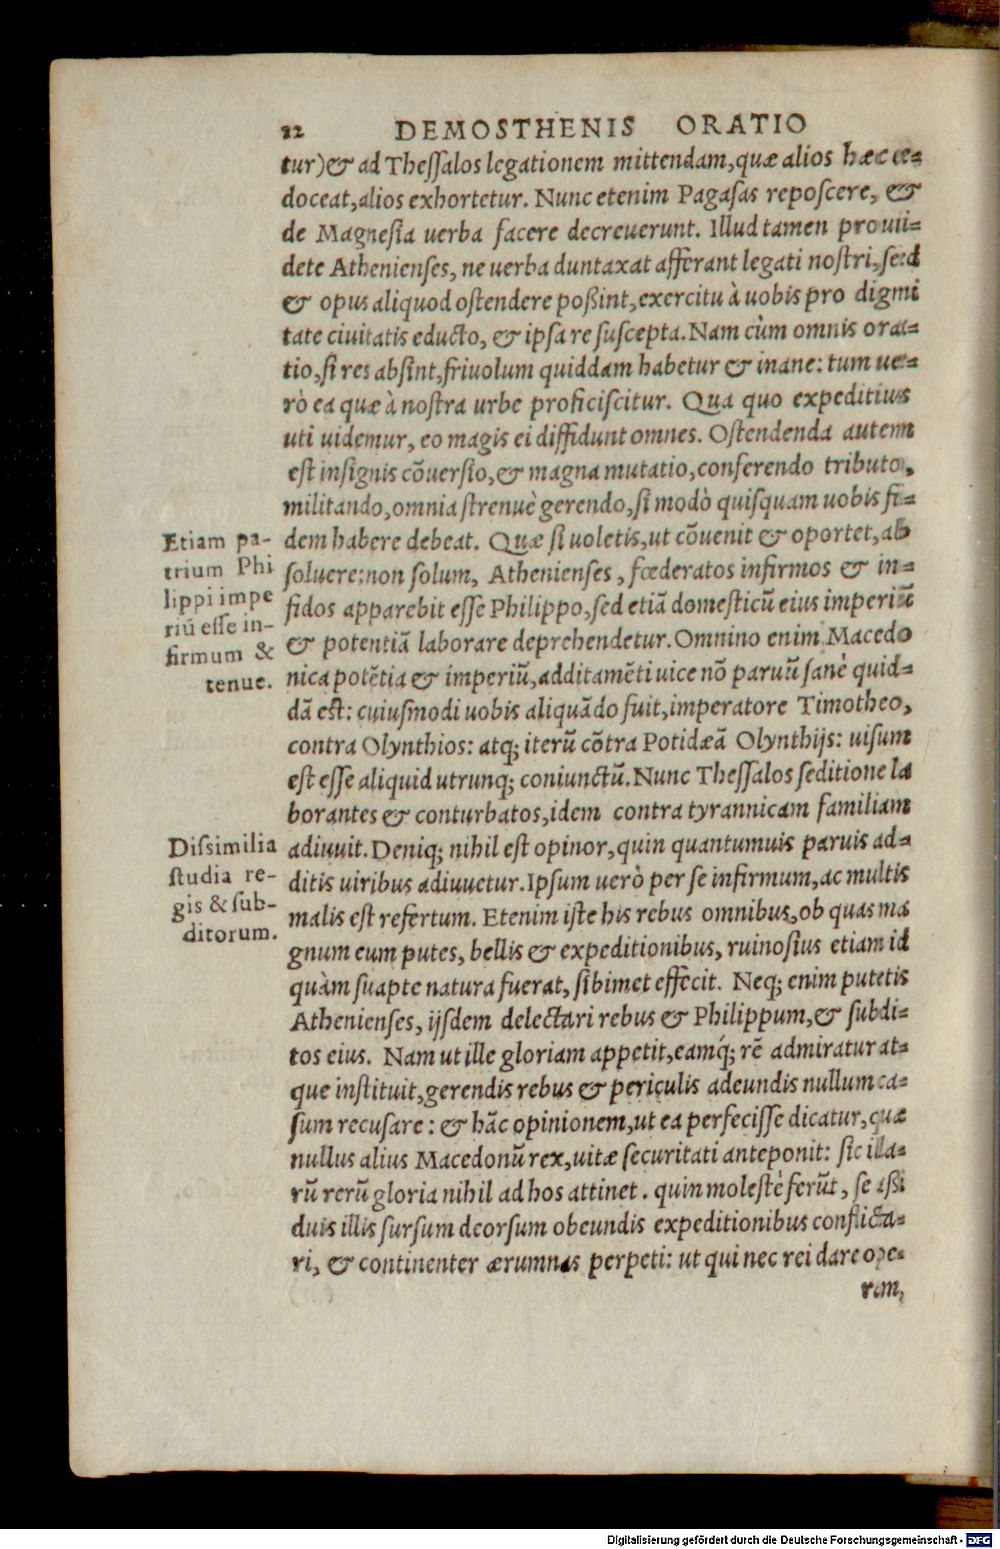 22 DEMOSTHENIS ORATIO
tur)& ad Thessalos legationem mittendam,quæ alios hæc e=
doceat,alios exhortetur. Nunc etenim Pagasas reposcere, &
de Magnesia uerba facere decreuerunt. Illud tamen proui=
dete Athenienses, ne uerba duntaxat afferant legati nostri, sed
& opus aliquod ostendere poßint, exercitu à uobis pro digni
tate ciuitatis educto, & ipsa re suscepta. Nam cùm omnis ora=
tio, si res absint, friuolum quiddam habetur & inane: tum ue=
rò ea quæ à nostra urbe proficiscitur. Qua quo expeditius
uti uidemur, eo magis ei diffidunt omnes. Ostendenda autem
est insignis cōuersio, & magna mutatio, conferendo tributo,
militando, omnia strenuè gerendo, si modò quisquam uobis fi=
dem habere debeat. Quæ si uoletis, ut cōuenit & oportet, ab
soluere: non solum, Athenienses, fœderatos infirmos & in=
fidos apparebit esse Philippo, sed etiā domesticū eius imperiū
& potentiā laborare deprehendetur. Omnino enim Macedo
nica potētia & imperiū, additamēti uice nō paruū sanè quid=
dā est: cuiusmodi uobis aliquādo fuit, imperatore Timotheo,
contra Olynthios: atq; iterū cōtra Potidæā Olynthijs: uisum
est esse aliquid utrunq; coniunctū. Nunc Thessalos seditione la
borantes & conturbatos, idem contra tyrannicam familiam
adiuuit. Deniq; nihil est opinor, quin quantumuis paruis ad=
ditis uiribus adiuuetur. Ipsum uerò per se infirmum, ac multis
malis est refertum. Etenim iste his rebus omnibus, ob quas ma
gnum eum putes, bellis & expeditionibus, ruinosius etiam id
quàm suapte natura fuerat, sibimet effecit. Neq; enim putetis
Athenienses, ijsdem delectari rebus & Philippum, & subdi=
tos eius. Nam ut ille gloriam appetit, eamq́; rē admiratur at=
que instituit, gerendis rebus & periculis adeundis nullum ca=
sum recusare: & hāc opinionem, ut ea perfecisse dicatur, quæ
nullus alius Macedonū rex, uitæ securitati anteponit: sic illa=
rū rerū gloria nihil ad hos attinet. quin molestè ferūt, se aßi
duis illis sursum deorsum obeundis expeditionibus conflicta=
ri, & continenter ærumnas perpeti: ut qui nec rei dare ope=
ram,
Etiam pa-
trium Phi
lippi impe
riū esse in-
firmum &
tenue.
Dissimilia
studia re-
gis & sub-
ditorum.
Digitalisierung gefördert durch die Deutsche Forschungsgemeinschaft - DFG